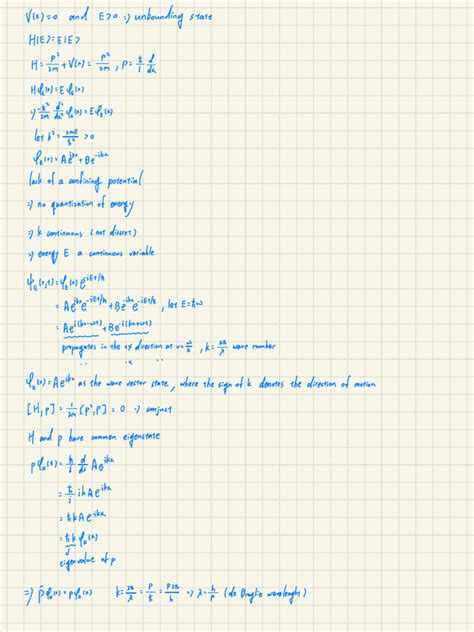 V(x)=0 and E>0 => unbounding state
H|E>=E|E>
H= p²/2m + V(x) = p²/2m , p= ħ/i d/dx
Hφ_E(x)=Eφ_E(x)
=> -ħ²/2m d²/dx² φ_E(x)=Eφ_E(x)
let k²= 2mE/ħ² >0
φ_E(x)=Ae^{ikx}+Be^{-ikx}
lack of a confining potential
=> no quantization of energy
=> k continuous (not discret)
=> energy E a continuous variable
ψ_E(x,t)=φ_E(x)e^{-iEt/ħ}
= Ae^{ikx}e^{-iEt/ħ} + Be^{-ikx}e^{-iEt/ħ} , let E=ħω
= Ae^{i(kx-ωt)} + Be^{-i(kx+ωt)}
propagates in the +x direction at v= ω/k , k= 2π/λ wave number
φ_k(x)=Ae^{ikx} as the wave vector state, where the sign of k denotes the direction of motion
[H,p]= 1/2m [p²,p] = 0 =>
H and p have common eigenstate
pφ_k(x)= ħ/i d/dx Ae^{ikx}
= ħ/i ikAe^{ikx}
= ħkAe^{ikx}
= ħk φ_k(x)
eigenvalue of p
=> p̂φ_k(x)=pφ_k(x) k= 2π/λ = p/ħ = p2π/h => λ= h/p (de Broglie wavelenght)